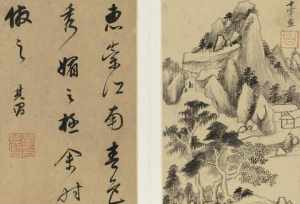 惠崇江南春色
秀媚之極余時
倣之
其昌